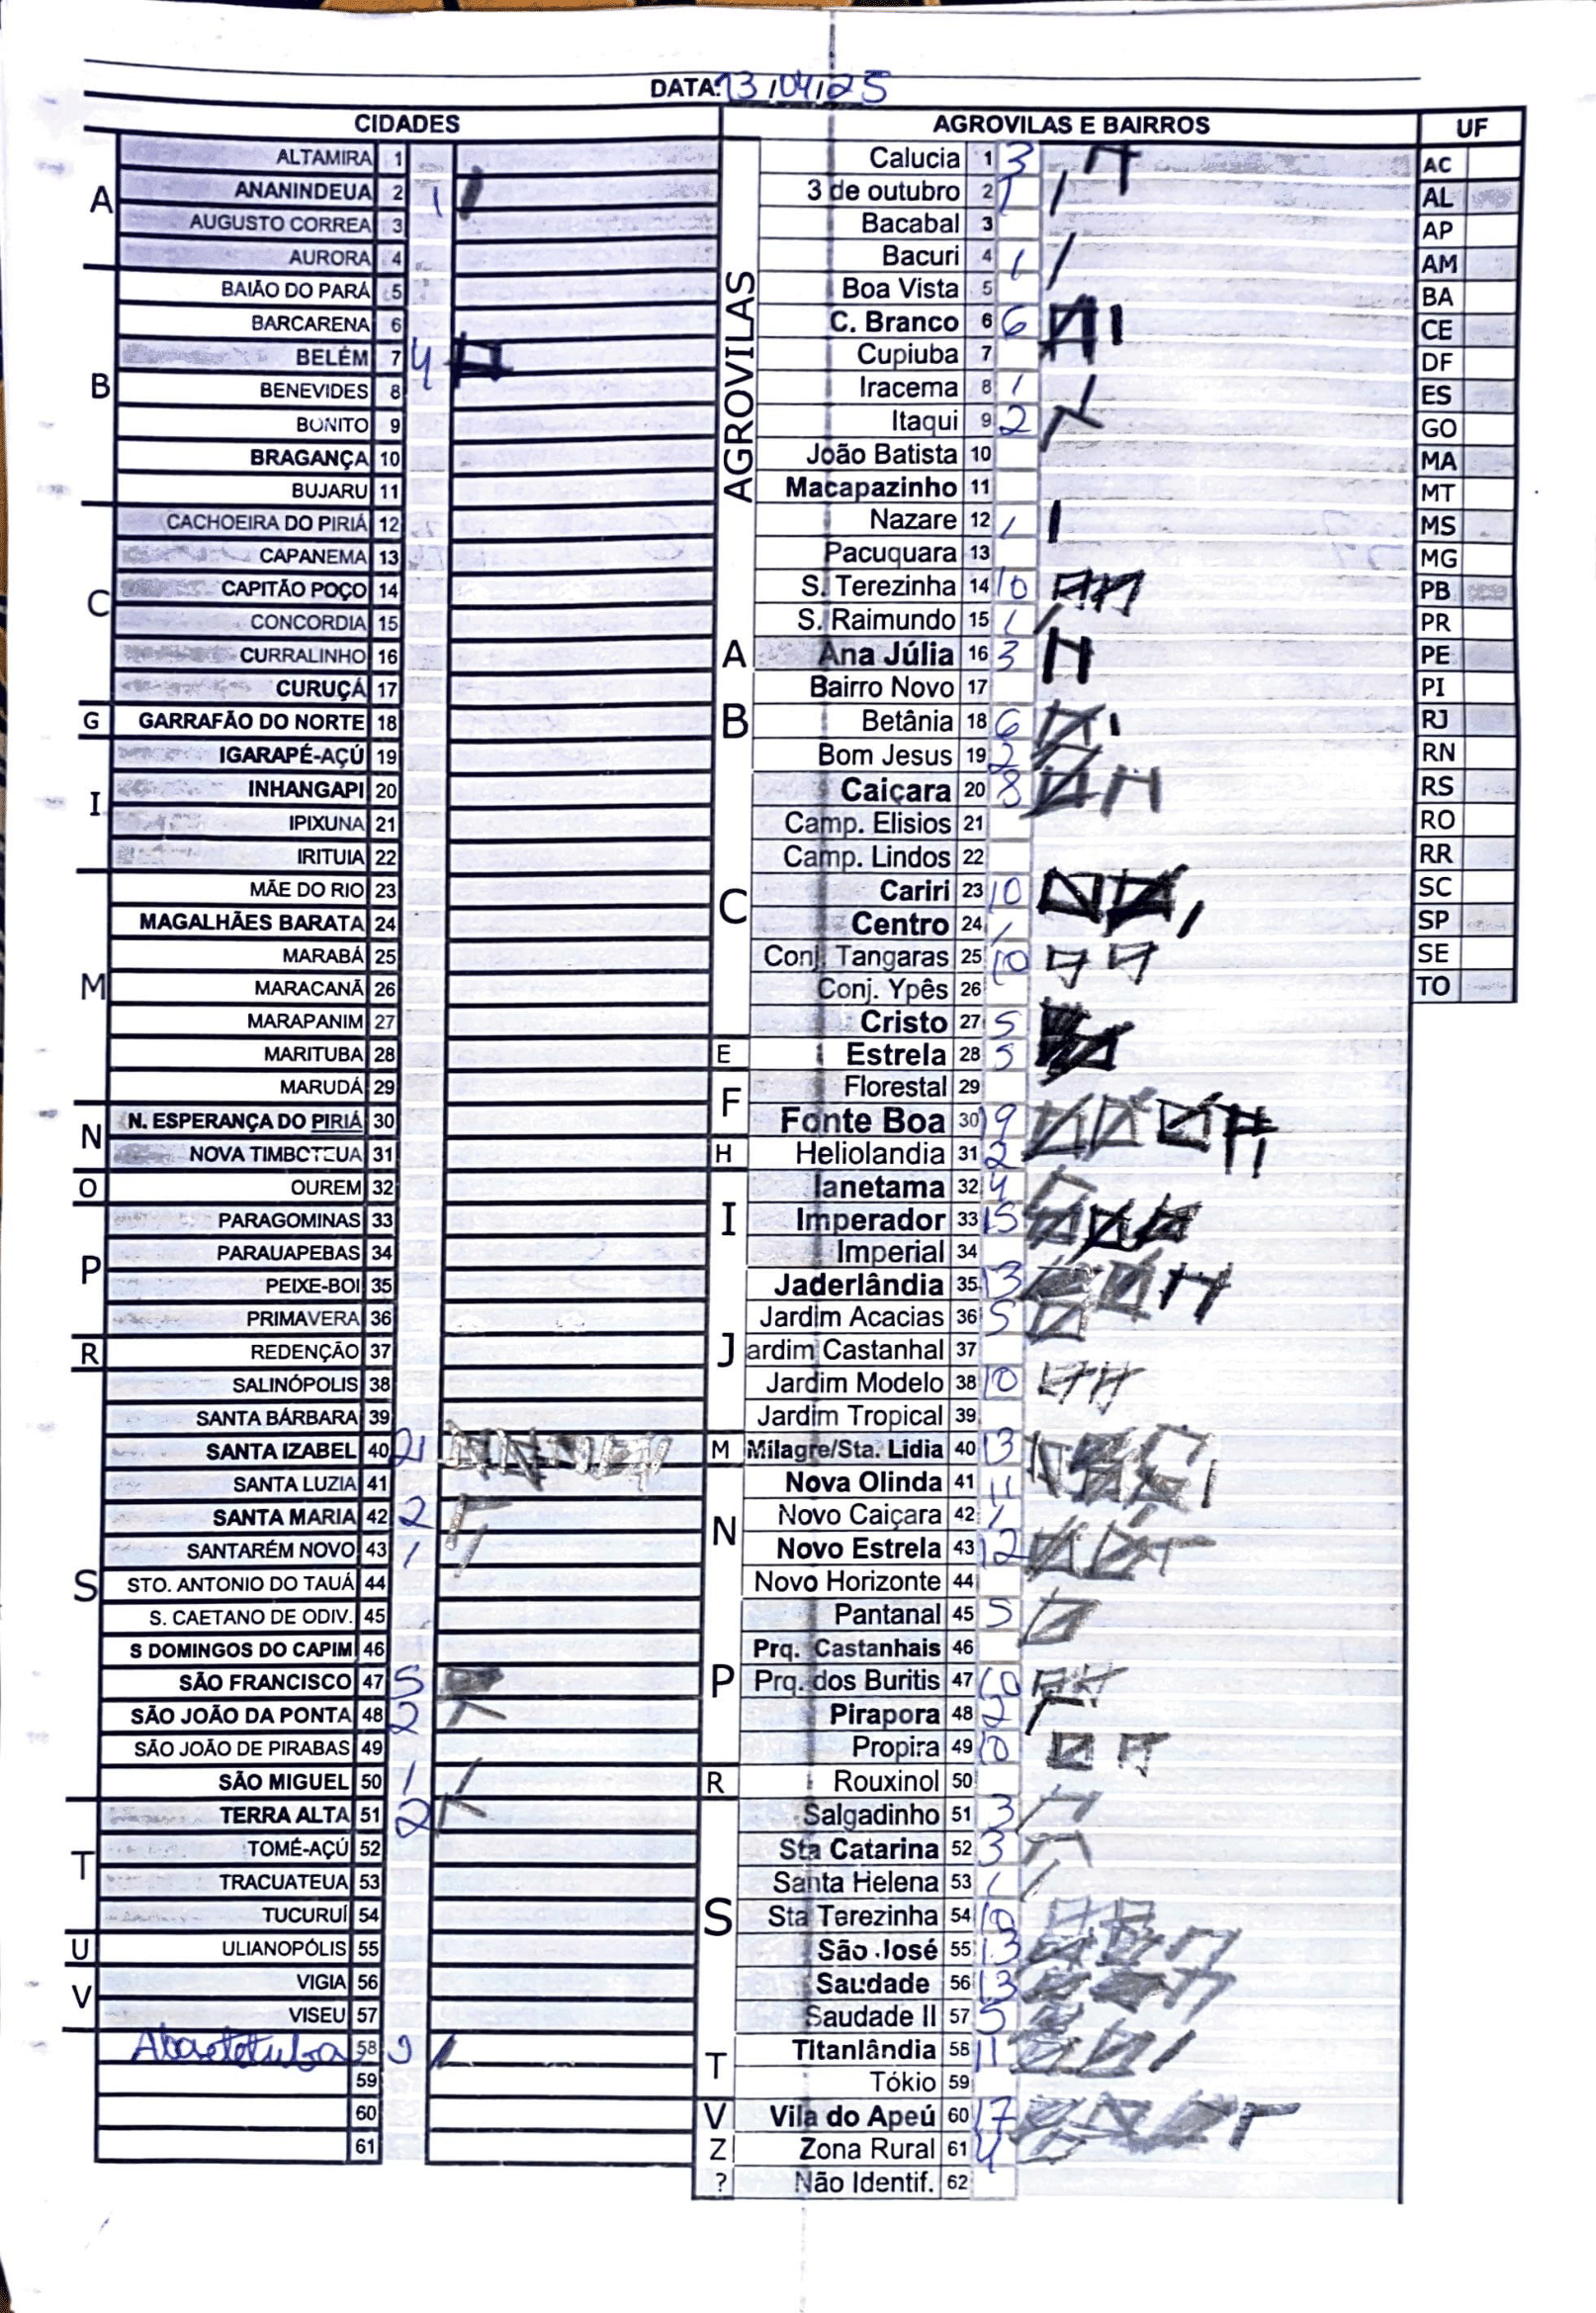 DATA: 13/04/25
CIDADES
A
ALTAMIRA 1
ANANINDEUA 2 1
AUGUSTO CORREA 3
AURORA 4
B
BAIÃO DO PARÁ 5
BARCARENA 6
BELÉM 7 4
BENEVIDES 8
BONITO 9
BRAGANÇA 10
BUJARU 11
C
CACHOEIRA DO PIRIÁ 12
CAPANEMA 13
CAPITÃO POÇO 14
CONCORDIA 15
CURRALINHO 16
CURUÇÁ 17
G
GARRAFÃO DO NORTE 18
I
IGARAPÉ-AÇÚ 19
INHANGAPI 20
IPIXUNA 21
IRITUIA 22
M
MÃE DO RIO 23
MAGALHÃES BARATA 24
MARABÁ 25
MARACANÃ 26
MARAPANIM 27
MARITUBA 28
MARUDÁ 29
N
N. ESPERANÇA DO PIRIÁ 30
NOVA TIMBOTEUA 31
O
OUREM 32
P
PARAGOMINAS 33
PARAUAPEBAS 34
PEIXE-BOI 35
PRIMAVERA 36
R
REDENÇÃO 37
S
SALINÓPOLIS 38
SANTA BÁRBARA 39
SANTA IZABEL 40 21
SANTA LUZIA 41
SANTA MARIA 42 2
SANTARÉM NOVO 43 1
STO. ANTONIO DO TAUÁ 44
S. CAETANO DE ODIV. 45
S DOMINGOS DO CAPIM 46
SÃO FRANCISCO 47 5
SÃO JOÃO DA PONTA 48 2
SÃO JOÃO DE PIRABAS 49
SÃO MIGUEL 50 1
T
TERRA ALTA 51 2
TOMÉ-AÇÚ 52
TRACUATEUA 53
TUCURUÍ 54
U
ULIANOPÓLIS 55
V
VIGIA 56
VISEU 57
Abaetetuba 58
59
60
61
AGROVILAS E BAIRROS
AGROVILAS
Calucia 1 3
3 de outubro 2 1
Bacabal 3
Bacuri 4 1
Boa Vista 5
C. Branco 6 6
Cupiuba 7
Iracema 8 1
Itaqui 9 2
João Batista 10
Macapazinho 11
Nazare 12 1
Pacuquara 13
S. Terezinha 14 10
S. Raimundo 15 1
A
Ana Júlia 16 3
B
Bairro Novo 17
Betânia 18 6
Bom Jesus 19 2
C
Caiçara 20 8
Camp. Elisios 21
Camp. Lindos 22
Cariri 23 10
Centro 24 1
Conj. Tangaras 25 10
Conj. Ypês 26
Cristo 27 5
E
Estrela 28 5
F
Florestal 29
Fonte Boa 30 19
H
Heliolandia 31 2
I
Ianetama 32 4
Imperador 33 15
Imperial 34
J
Jaderlândia 35 13
Jardim Acacias 36 5
Jardim Castanhal 37
Jardim Modelo 38 10
Jardim Tropical 39
M
Milagre/Sta. Lidia 40 13
N
Nova Olinda 41 11
Novo Caiçara 42 1
Novo Estrela 43 12
Novo Horizonte 44
P
Pantanal 45 5
Prq. Castanhais 46
Prq. dos Buritis 47 10
Pirapora 48 2
Propira 49 10
R
Rouxinol 50
S
Salgadinho 51 3
Sta Catarina 52 3
Santa Helena 53 1
Sta Terezinha 54 10
São José 55 13
Saudade 56 13
Saudade II 57 5
T
Titanlândia 58 11
Tókio 59
V
Vila do Apeú 60 17
Z
Zona Rural 61 4
?
Não Identif. 62
UF
AC
AL
AP
AM
BA
CE
DF
ES
GO
MA
MT
MS
MG
PB
PR
PE
PI
RJ
RN
RS
RO
RR
SC
SP
SE
TO